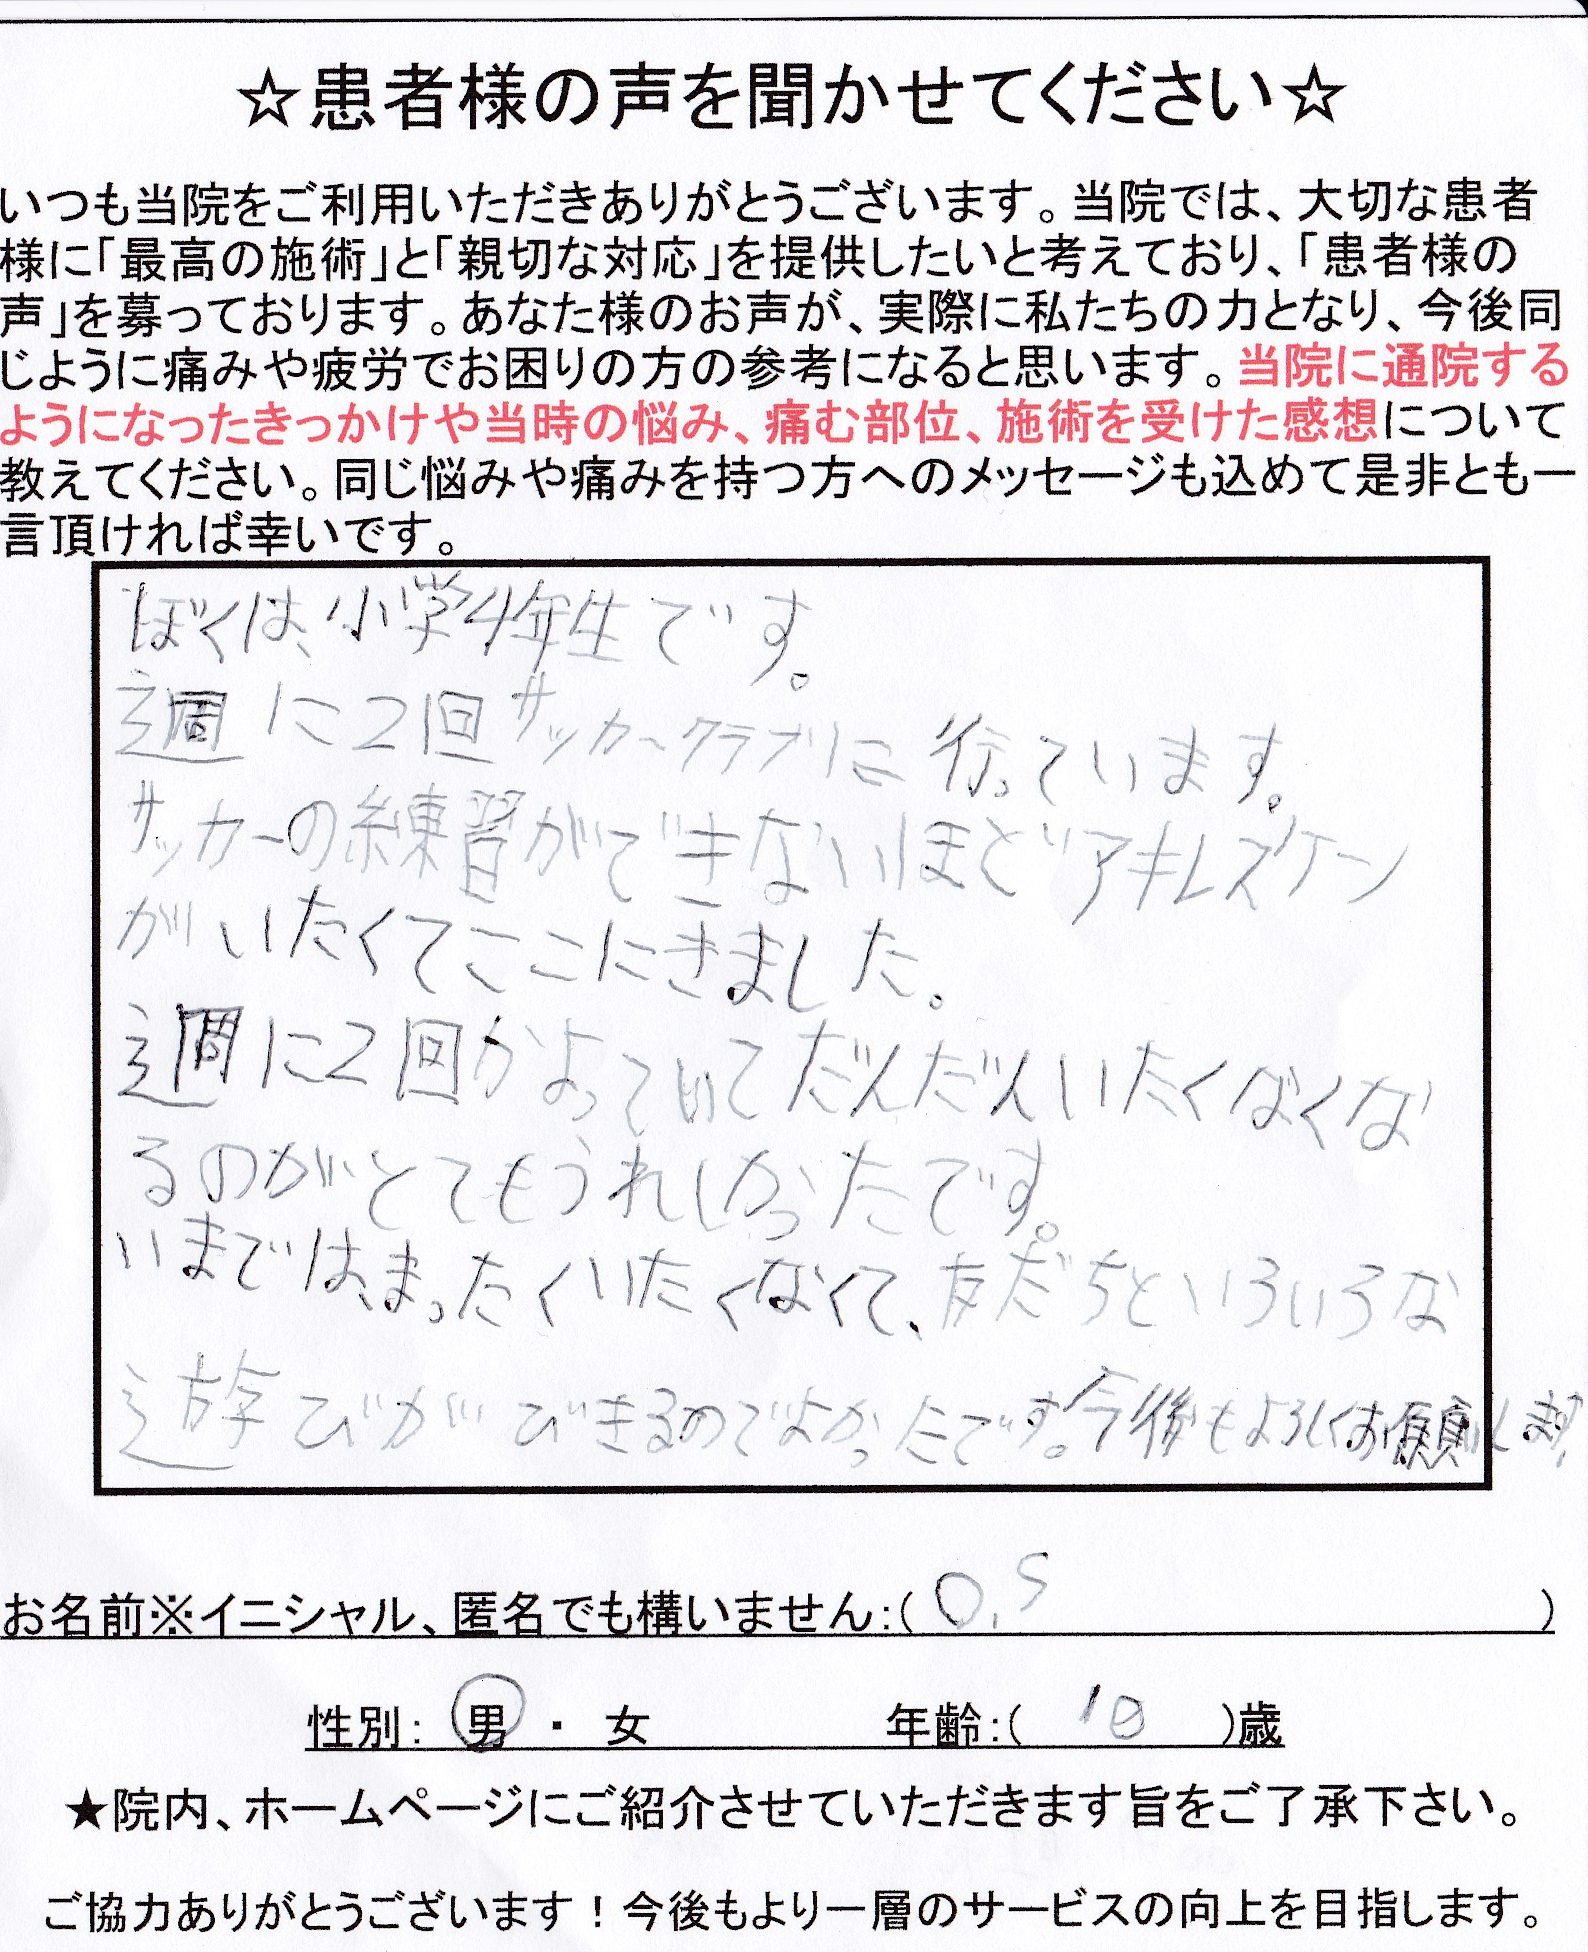 ☆患者様の声を聞かせてください☆
いつも当院をご利用いただきありがとうございます。当院では、大切な患者
様に「最高の施術」と「親切な対応」を提供したいと考えており、「患者様の
声」を募っております。あなた様のお声が、実際に私たちの力となり、今後同
じように痛みや疲労でお困りの方の参考になると思います。当院に通院する
ようになったきっかけや当時の悩み、痛む部位、施術を受けた感想について
教えてください。同じ悩みや痛みを持つ方へのメッセージも込めて是非とも一
言頂ければ幸いです。
ぼくは、小学4年生です。
週に2回サッカークラブに行っています。
サッカーの練習ができないほどアキレスケン
がいたくてここにきました。
週に2回かよっていてだんだんいたくなくな
るのがとてもうれしかったです。
いまでは、まったくいたくなくて、友だちといろいろな
遊びができるのでよかったです。今後もよろしくお願します。
お名前※イニシャル、匿名でも構いません:( O.S )
性別: 男 ・ 女 年齢:( 10 )歳
★院内、ホームページにご紹介させていただきます旨をご了承下さい。
ご協力ありがとうございます！今後もより一層のサービスの向上を目指します。